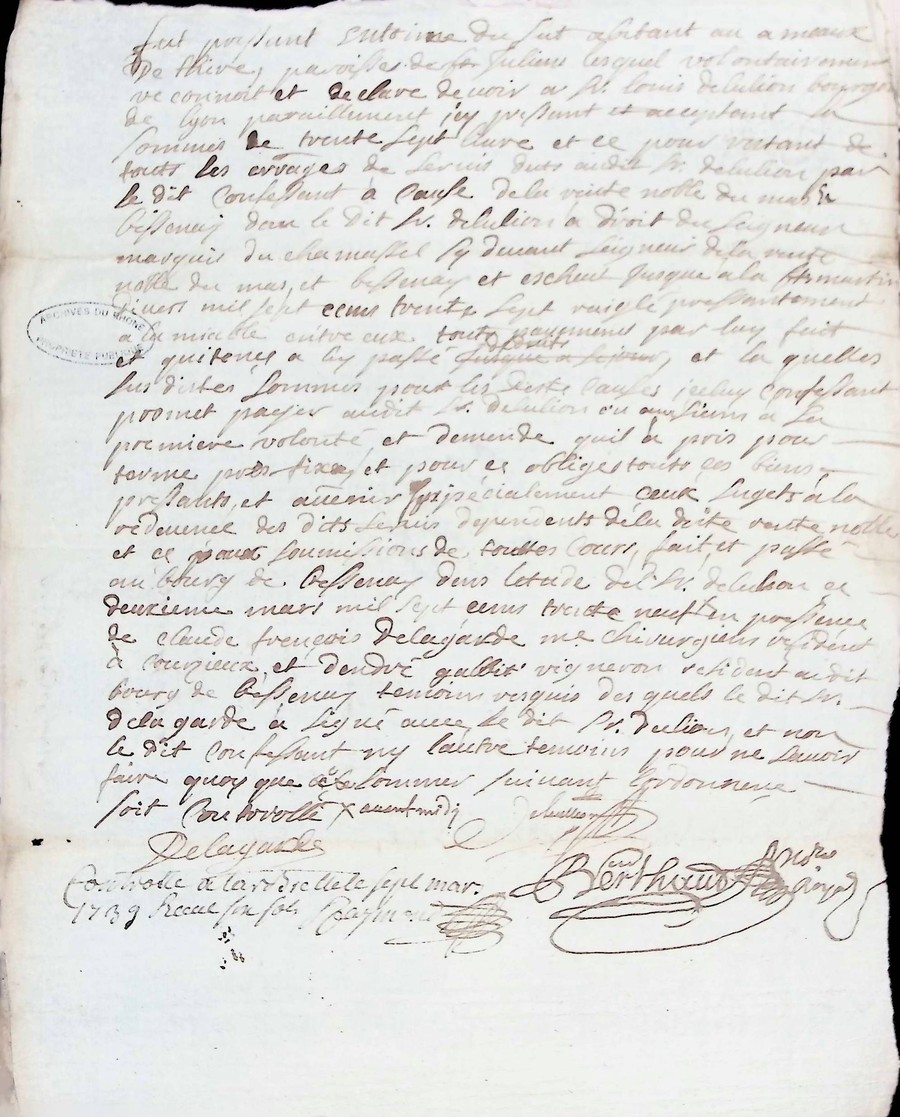 fut pressant Entoine du sut abitant au ameaux
De thivé, paroisses de st Julient lesquel volontairement
reconnoit et declare devoir a Sr. louis delulion bourgois
de lyon pareillement icy pressant et acceptant la
sommes de trente sept livre et ce pour restant de
touts les arrages de servis duts audit Sr. delulion par
le dit Confessant a Cause de la rente noble du mas &
bessenay dont le dit Sr. delulion a droit du seigneur
marquis du chamassel sy devant seigneur de la rente
noble du mas, et bessenay et escheut jusque a la st martin
divers mil sept cens trente sept reiglé pressantement
a la miable entre eux touts payement par luy fait
ARCHIVES DU RHONE
PROPRIETE PUBLIQUE
et quitences a luy passé deduits et la quelles
sus dittes sommes pour les dites Causes iceluy Confessant
promet payer audit Sr. delulion ou aux siens a sa
premiere volonté et demende quil a pris pour
terme prés fixe, et pour ce obliges touts ces biens
pressants, et avenir spécialement ceux sugets a la
redevence des dits servis dependents de la dite rente noble
et ce soumissions de touttes Cours, fait, et passé
au bourg de bessenay dens letude de Sr. delulion ce
deuxieme mars mil sept cens trente neuf en pressence
de claude françois Delagarde me chirurgiens residént
à Courzieux, et dendré vigneron residant audit
bourg de bessenay temoins resquis des quels le dit Sr.
dela garde à signé avec le dit Sr. Dulion, et non
le dit Confessant ny lautre temoins pour ne savoir
faire quoy que sommer suivant lordonnence
soit Controllé x avent midy
Delagarde
Berthaud
Controllé a larbrelle le sept mar.
1739 Receu six sols